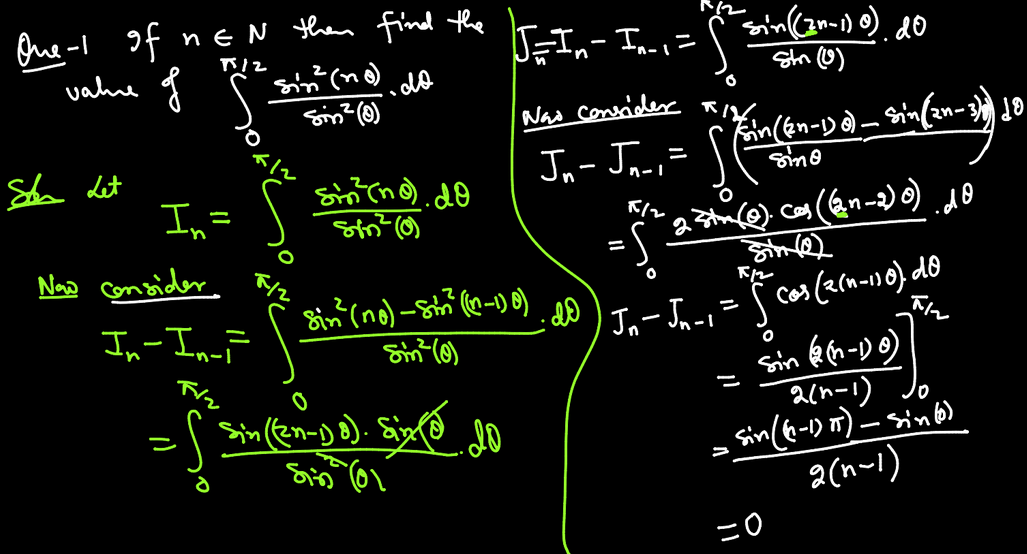 Que-1 If n ∈ N then find the
value of ∫₀^{π/2} sin²(nθ)/sin²(θ) . dθ
Soln Let
Iₙ = ∫₀^{π/2} sin²(nθ)/sin²(θ) . dθ
Now consider
Iₙ - Iₙ₋₁ = ∫₀^{π/2} (sin²(nθ) - sin²((n-1)θ))/sin²(θ) . dθ
= ∫₀^{π/2} (sin((2n-1)θ) . sin(θ))/sin²(θ) . dθ
Jₙ = Iₙ - Iₙ₋₁ = ∫₀^{π/2} sin((2n-1)θ)/sin(θ) . dθ
Now consider
Jₙ - Jₙ₋₁ = ∫₀^{π/2} ((sin((2n-1)θ) - sin((2n-3)θ))/sinθ) dθ
= ∫₀^{π/2} (2 sin(θ) . cos((2n-2)θ))/sin(θ) . dθ
Jₙ - Jₙ₋₁ = ∫₀^{π/2} cos(2(n-1)θ) . dθ
= sin(2(n-1)θ)/2(n-1) ]₀^{π/2}
= (sin((n-1)π) - sin(0))/2(n-1)
= 0